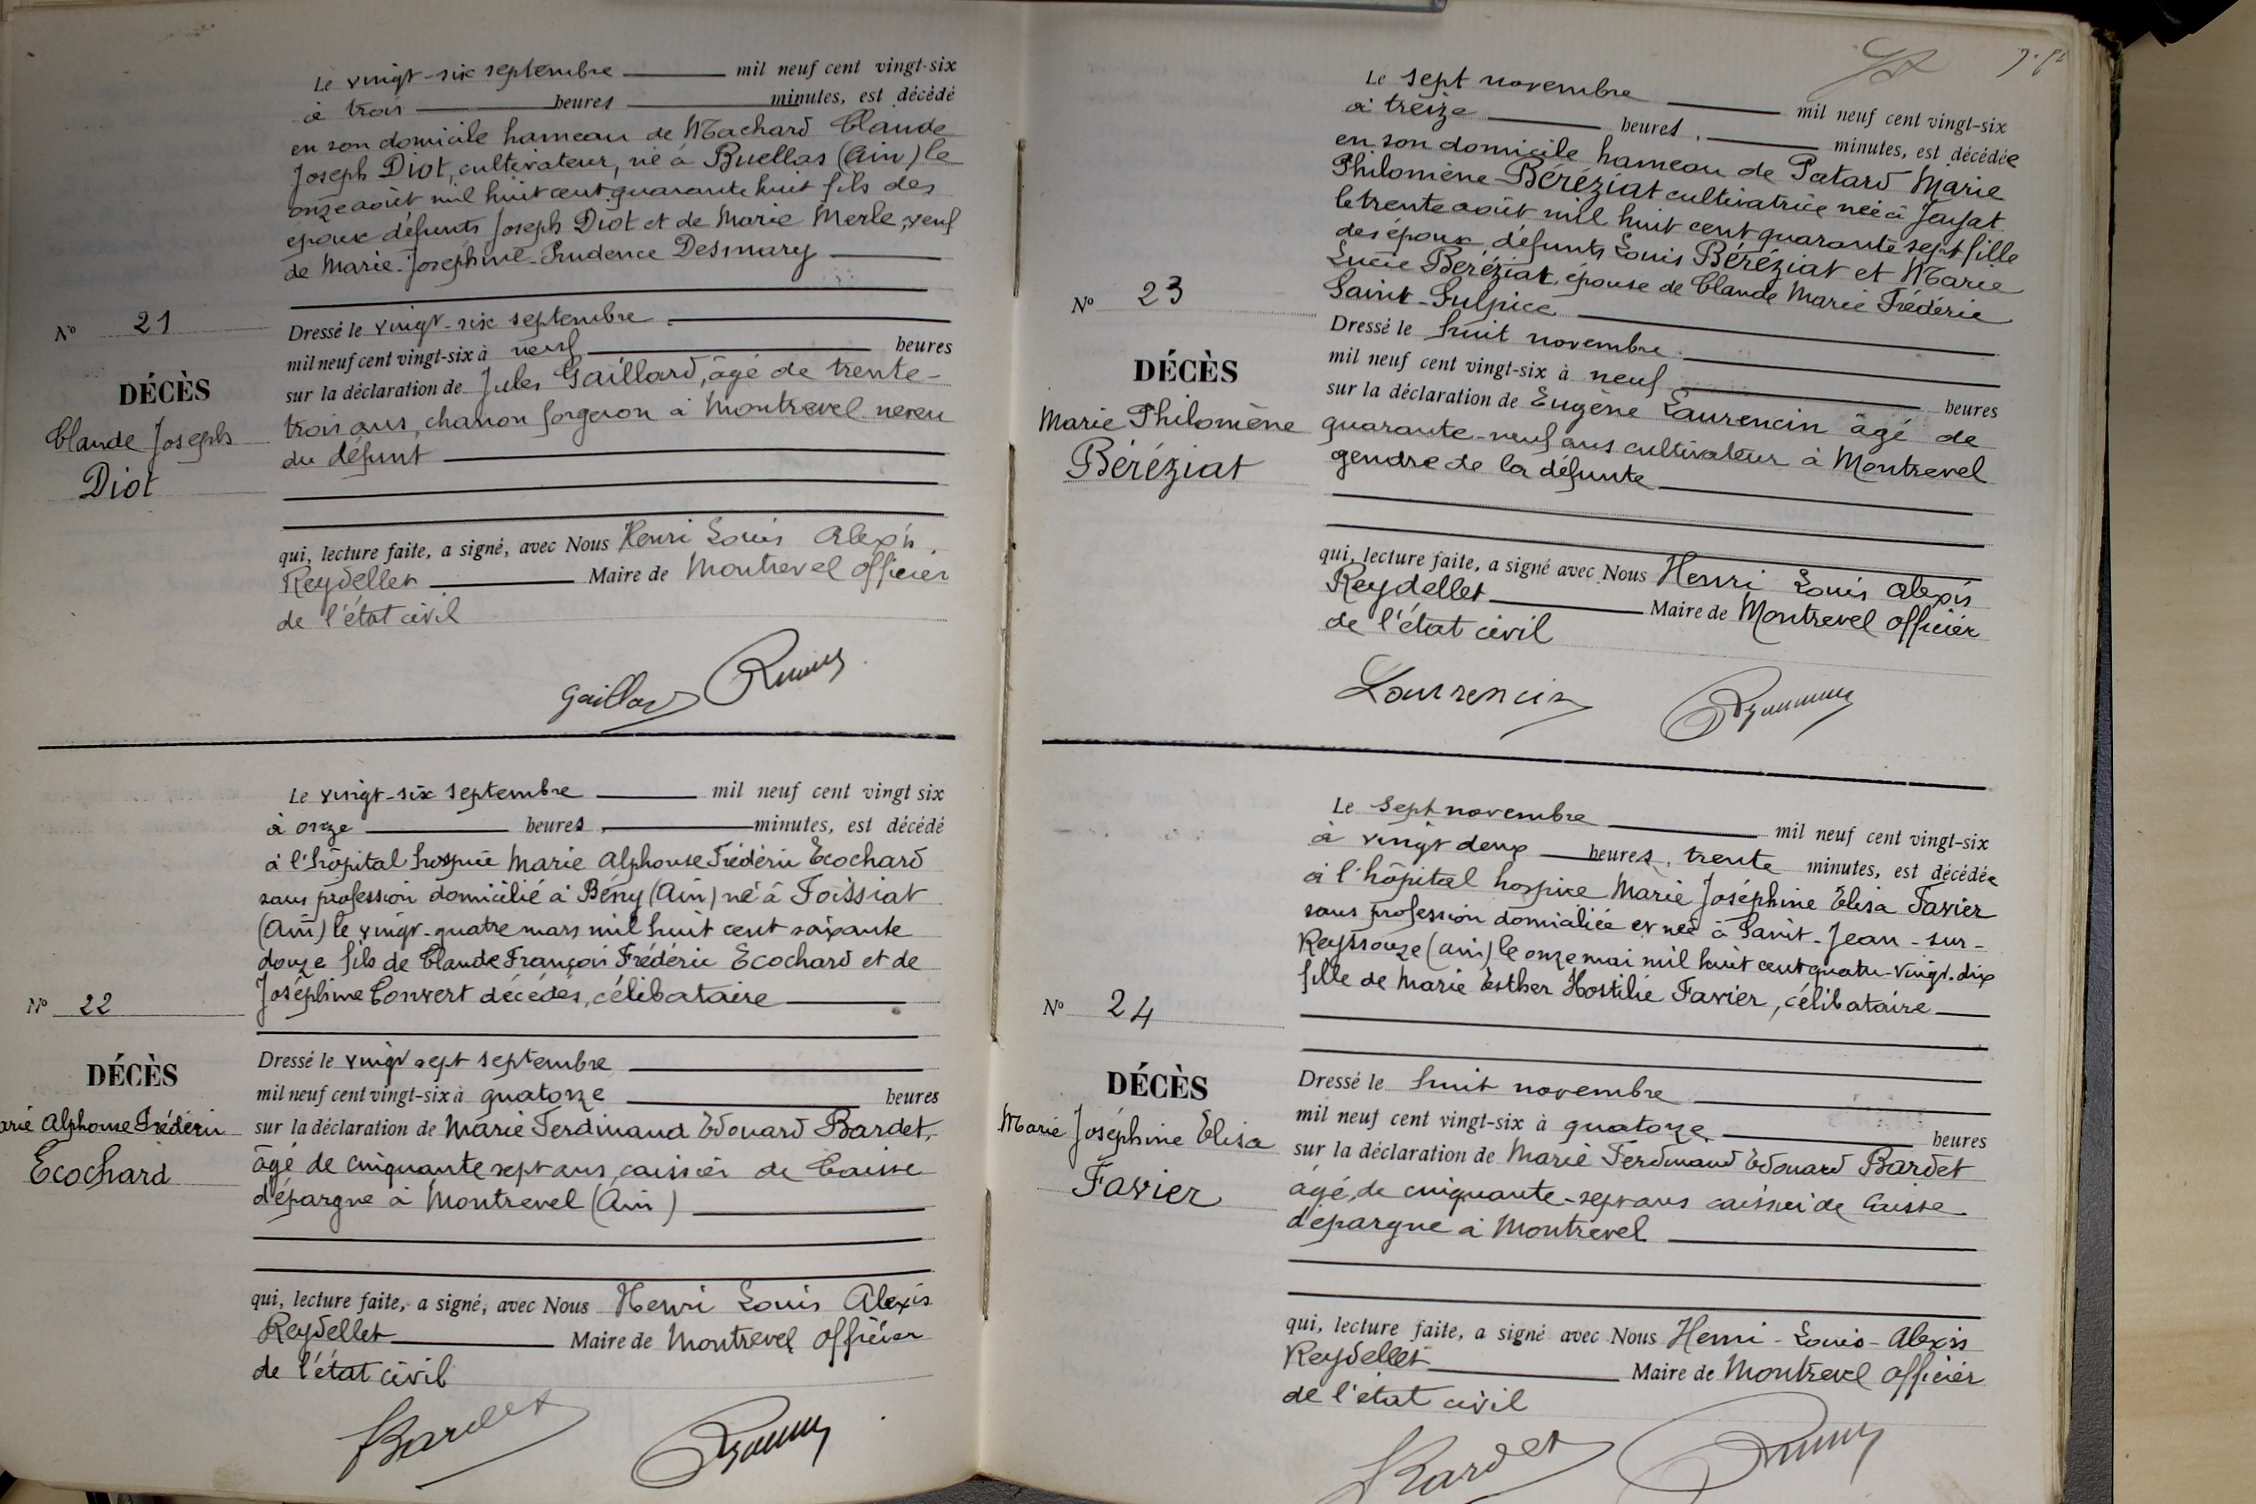 Le vingt-six septembre mil neuf cent vingt-six
à trois heures minutes, est décédé
en son domicile hameau de Machard Claude
Joseph Diot, cultivateur, né à Buellas (Ain) le
onze août mil huit cent quarante huit fils des
époux défunts Joseph Diot et de Marie Merle, veuf
de Marie-Joséphine-Prudence Desmary
Nº 21
DÉCÈS
Claude Joseph
Diot
Dressé le vingt-six septembre
mil neuf cent vingt-six à neuf heures
sur la déclaration de Jules Gaillard, âgé de trente-
trois ans, charron forgeron à Montrevel neveu
du défunt
qui, lecture faite, a signé, avec Nous Henri Louis Alexis
Reydellet Maire de Montrevel officier
de l'état civil
Gaillard
Le vingt-six septembre mil neuf cent vingt six
à onze heures, minutes, est décédé
à l'hôpital hospice Marie Alphonse Frédéric Ecochard
sans profession domicilié à Bény (Ain) né à Foissiat
(Ain) le vingt-quatre mars mil huit cent soixante
douze fils de Claude François Frédéric Ecochard et de
Joséphine Convert décédés, célibataire
Nº 22
DÉCÈS
arie Alphonse Frédéric
Ecochard
Dressé le vingt sept septembre
mil neuf cent vingt-six à quatorze heures
sur la déclaration de Marie Ferdinand Edouard Bardet,
âgé de cinquante sept ans, caissier de Caisse
d'épargne à Montrevel (Ain)
qui, lecture faite, a signé, avec Nous Henri Louis Alexis
Reydellet Maire de Montrevel officier
de l'état civil
Bardet
Le sept novembre mil neuf cent vingt-six
à treize heures, minutes, est décédée
en son domicile hameau de Patard Marie
Philomène Béréziat cultivatrice née à Jayat
le trente août mil huit cent quarante sept fille
des époux défunts Louis Béréziat et Marie
Lucie Béréziat, épouse de Claude Marie Frédéric
Saint-Sulpice
Nº 23
DÉCÈS
Marie Philomène
Béréziat
Dressé le huit novembre
mil neuf cent vingt-six à neuf heures
sur la déclaration de Eugène Laurencin âgé de
quarante-neuf ans cultivateur à Montrevel
gendre de la défunte
qui, lecture faite, a signé avec Nous Henri Louis Alexis
Reydellet Maire de Montrevel officier
de l'état civil
Laurencin
Le sept novembre mil neuf cent vingt-six
à vingt deux heures, trente minutes, est décédée
à l'hôpital hospice Marie Joséphine Elisa Favier
sans profession domiciliée et née à Saint-Jean-sur-
Reyssouze (Ain) le onze mai mil huit cent quatre-vingt-dix
fille de Marie Esther Hostilie Favier, célibataire
Nº 24
DÉCÈS
Marie Joséphine Elisa
Favier
Dressé le huit novembre
mil neuf cent vingt-six à quatorze heures
sur la déclaration de Marie Ferdinand Edouard Bardet
âgé de cinquante-sept ans caissier de Caisse
d'épargne à Montrevel
qui, lecture faite, a signé avec Nous Henri-Louis-Alexis
Reydellet Maire de Montrevel officier
de l'état civil
Bardet